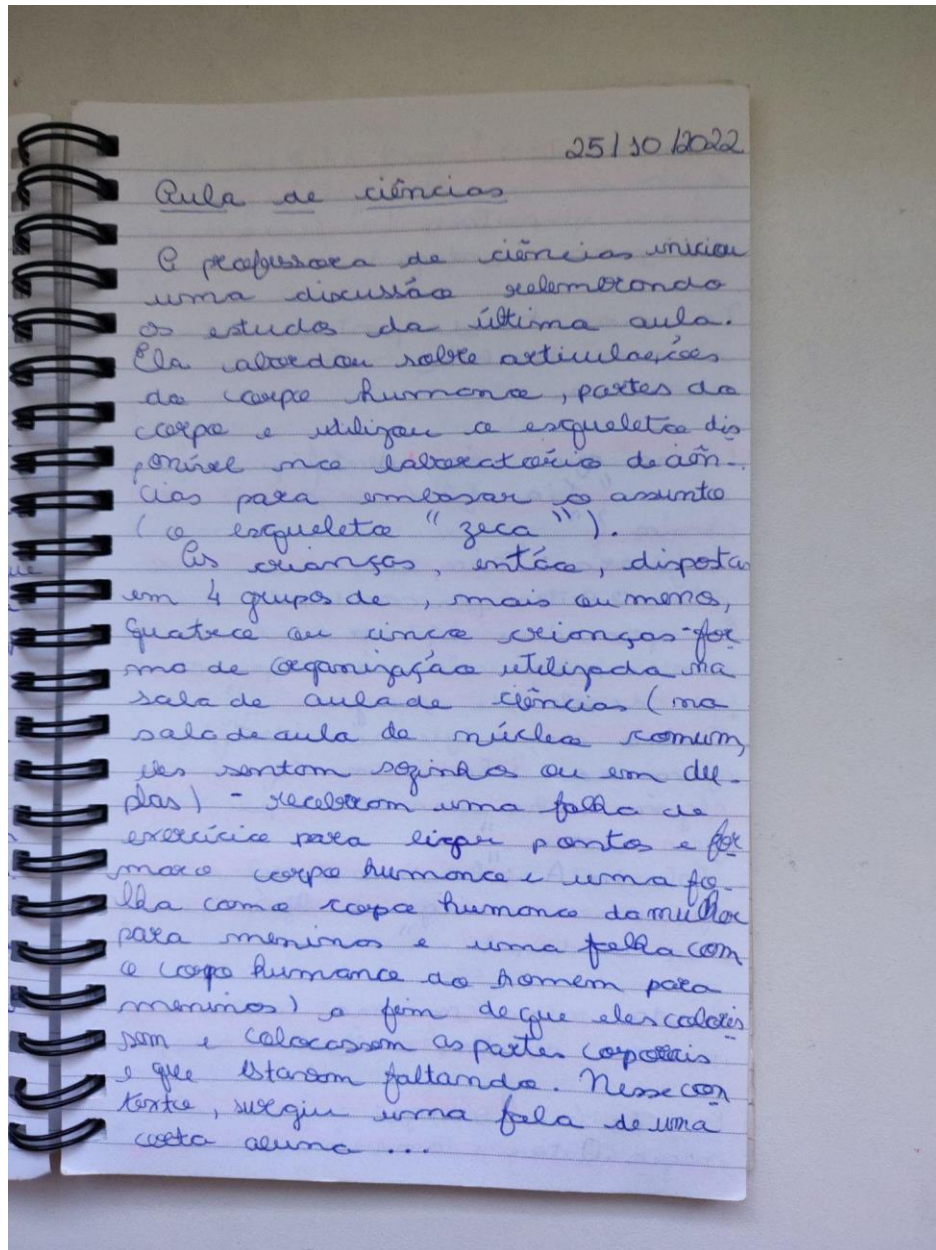 25/10/2022
Aula de ciências
A professora de ciências iniciou
uma discussão relembrando
os estudos da última aula.
Ela abordou sobre articulações
do corpo humano, partes do
corpo e utilizou o esqueleto dis
ponível no laboratório de ciên-
cias para embasar o assunto
(o esqueleto "zeca").
As crianças, então, dispostas
em 4 grupos de, mais ou menos,
quatro ou cinco crianças - for
ma de organização utilizada na
sala de aula de ciências (na
sala de aula do núcleo comum,
eles sentam sozinhos ou em du-
plas) - receberam uma folha de
exercício para ligar pontos e for
mar o corpo humano e uma fo-
lha com o corpo humano da mulher
para meninas e uma folha com
o corpo humano do homem para
meninos) a fim de que eles coloris
sem e colocassem as partes corporais
e que estavam faltando. Nesse con
texto, surgiu uma fala de uma
certa aluna ...